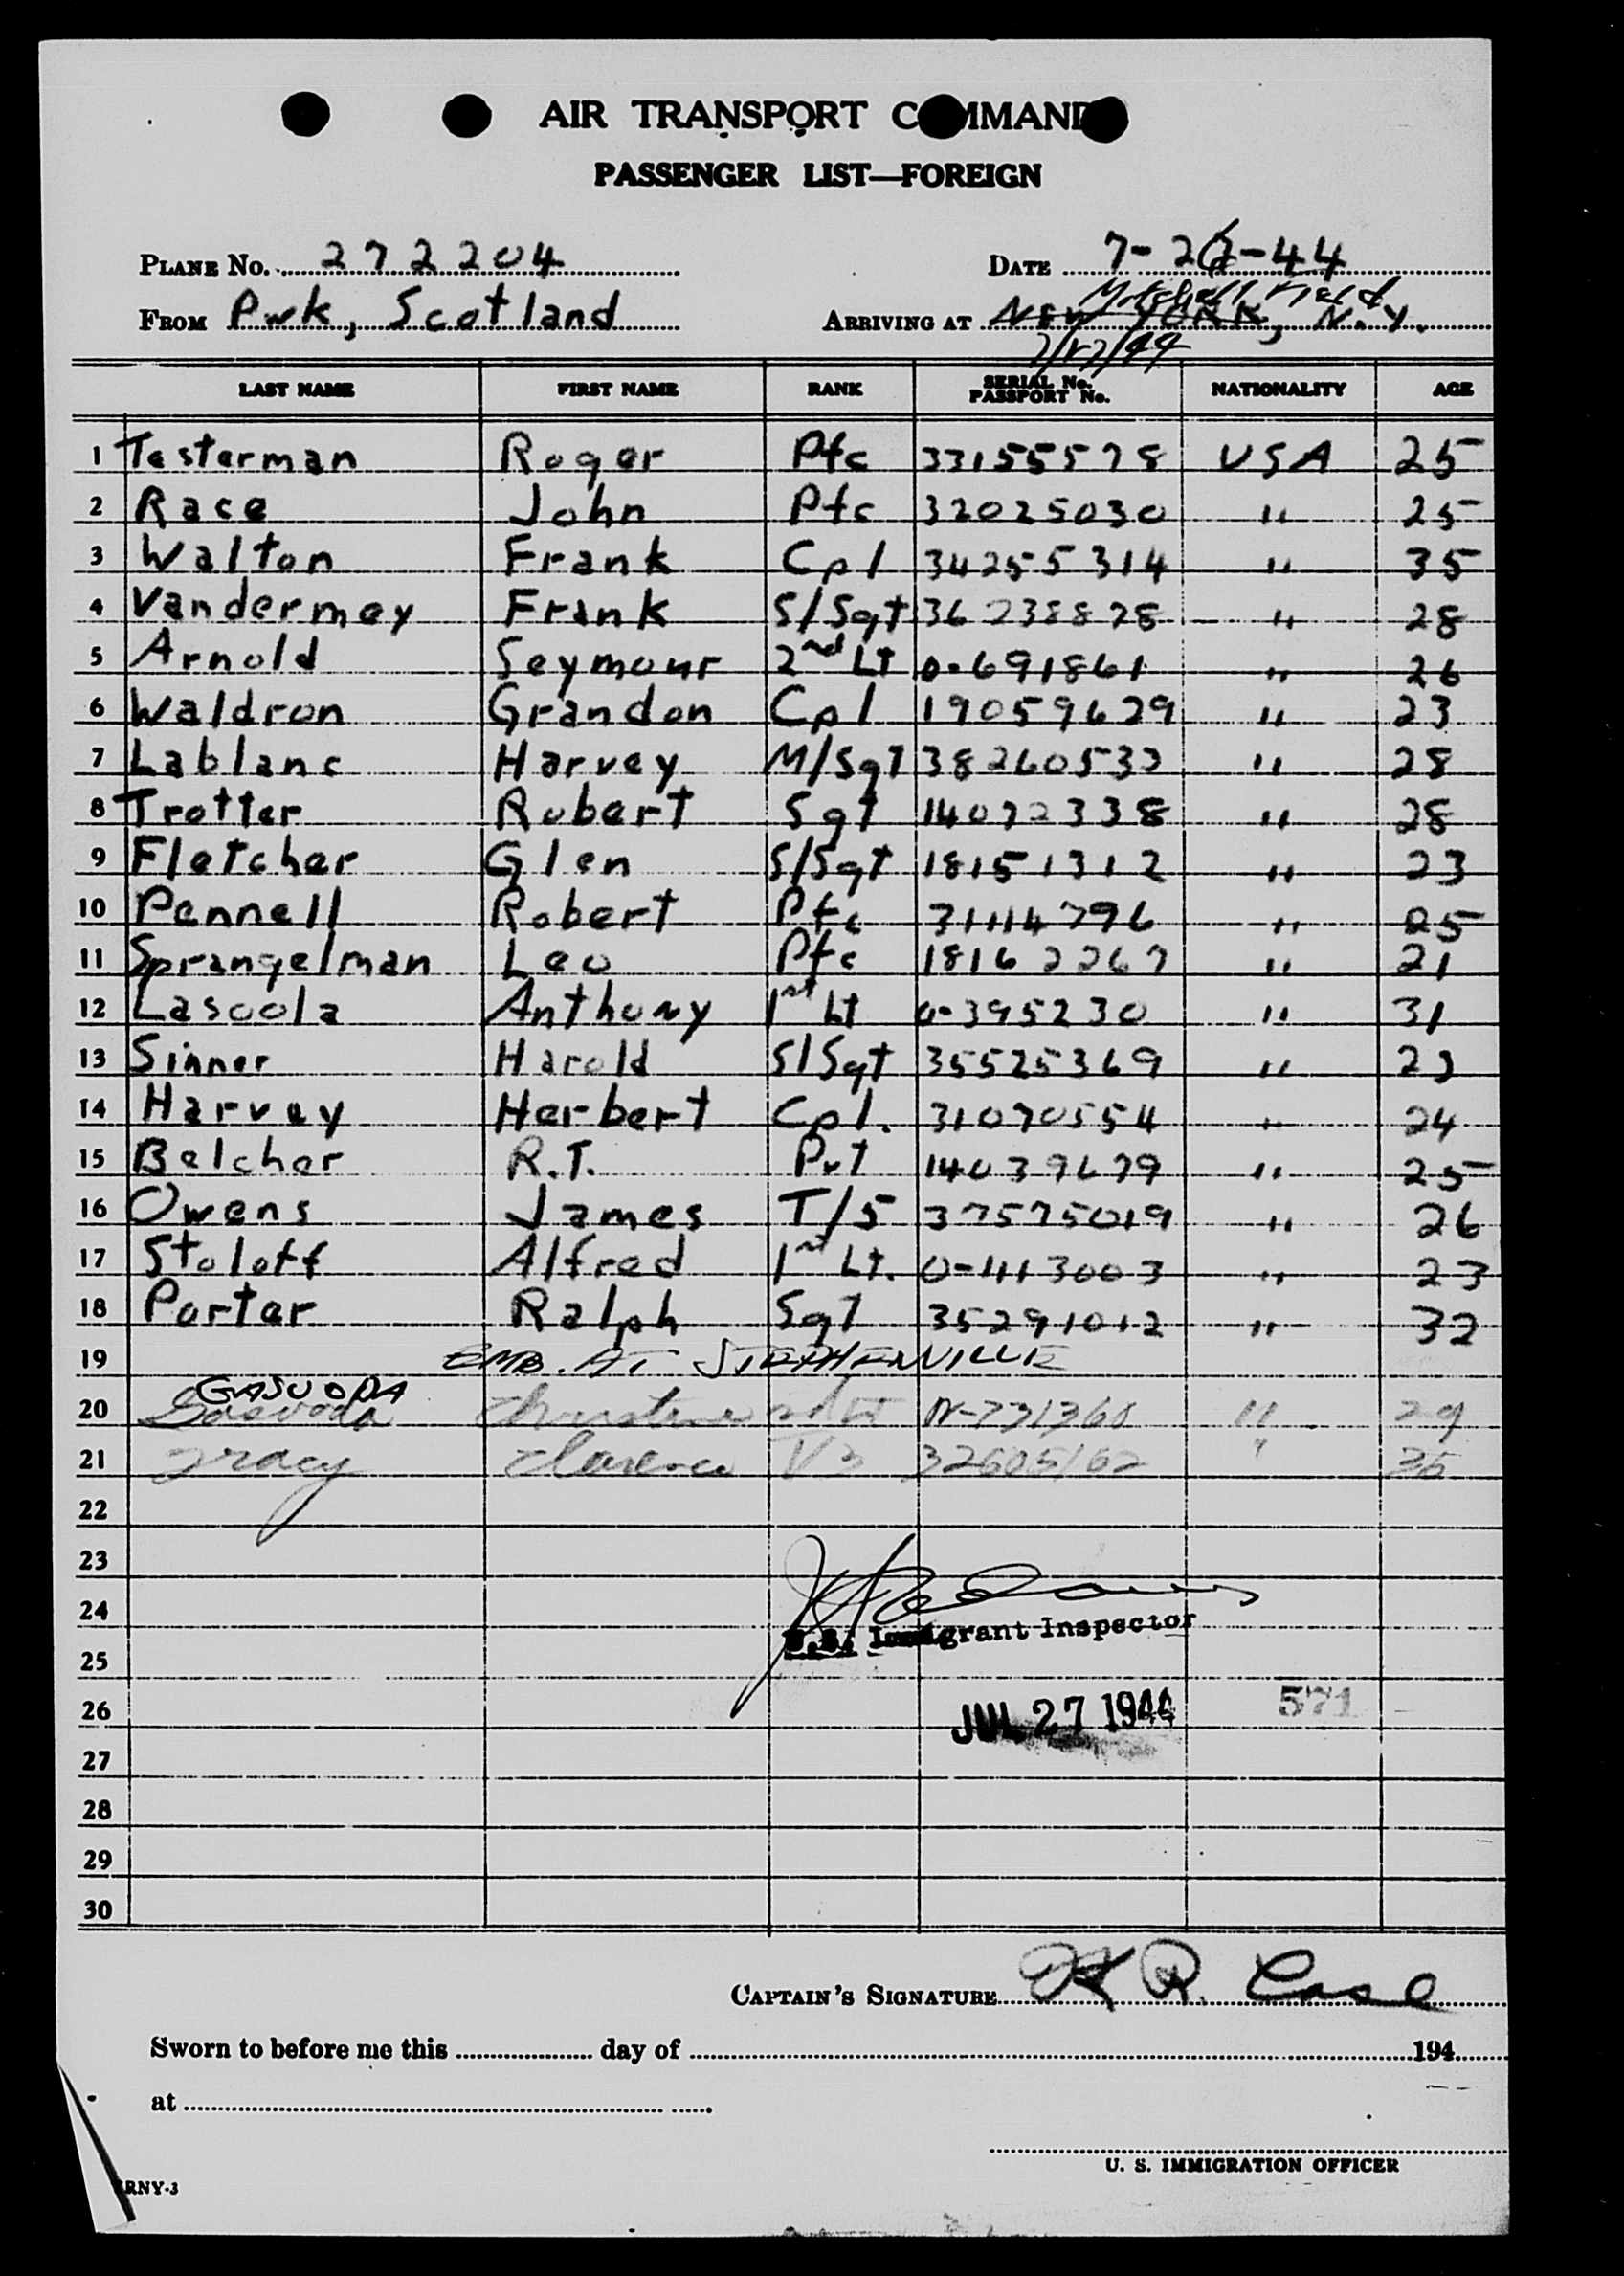 AIR TRANSPORT COMMAND
PASSENGER LIST—FOREIGN
PLANE No. 272204 DATE 7-26-44
Mitchell Field
FROM Pwk, Scotland ARRIVING AT NEW YORK, N.Y.
7/27/44
LAST NAME FIRST NAME RANK SERIAL No. PASSPORT No. NATIONALITY AGE
1 Testerman Roger Pfc 33155578 USA 25
2 Race John Pfc 32025030 " 25
3 Walton Frank Cpl 34255314 " 35
4 Vandermey Frank S/Sgt 36238878 " 28
5 Arnold Seymour 2nd Lt 0-691861 " 26
6 Waldron Grandon Cpl 19059629 " 23
7 Lablanc Harvey M/Sgt 38260532 " 28
8 Trotter Robert Sgt 14072338 " 28
9 Fletcher Glen S/Sgt 18151312 " 23
10 Pennell Robert Pfc 31114796 " 25
11 Sprangelman Leo Pfc 18162267 " 21
12 Lascola Anthony 1st Lt 0-395230 " 31
13 Sinner Harold S/Sgt 35525369 " 23
14 Harvey Herbert Cpl. 31070554 " 24
15 Belcher R.T. Pvt 14039679 " 25
16 Owens James T/5 37575019 " 26
17 Stoloff Alfred 1st Lt. 0-1113003 " 23
18 Porter Ralph Sgt 35291012 " 32
19 EMB. AT STEPHENVILLE
GASVODA
20 Gasvoda Christine 2nd Lt N-731360 " 29
21 Tracy Clarence 32605162 " 36
22
23
24
U.S. Immigrant Inspector
25
26 JUL 27 1944 571
27
28
29
30
CAPTAIN'S SIGNATURE R. Case
Sworn to before me this day of 194
at
U. S. IMMIGRATION OFFICER
RNY-3